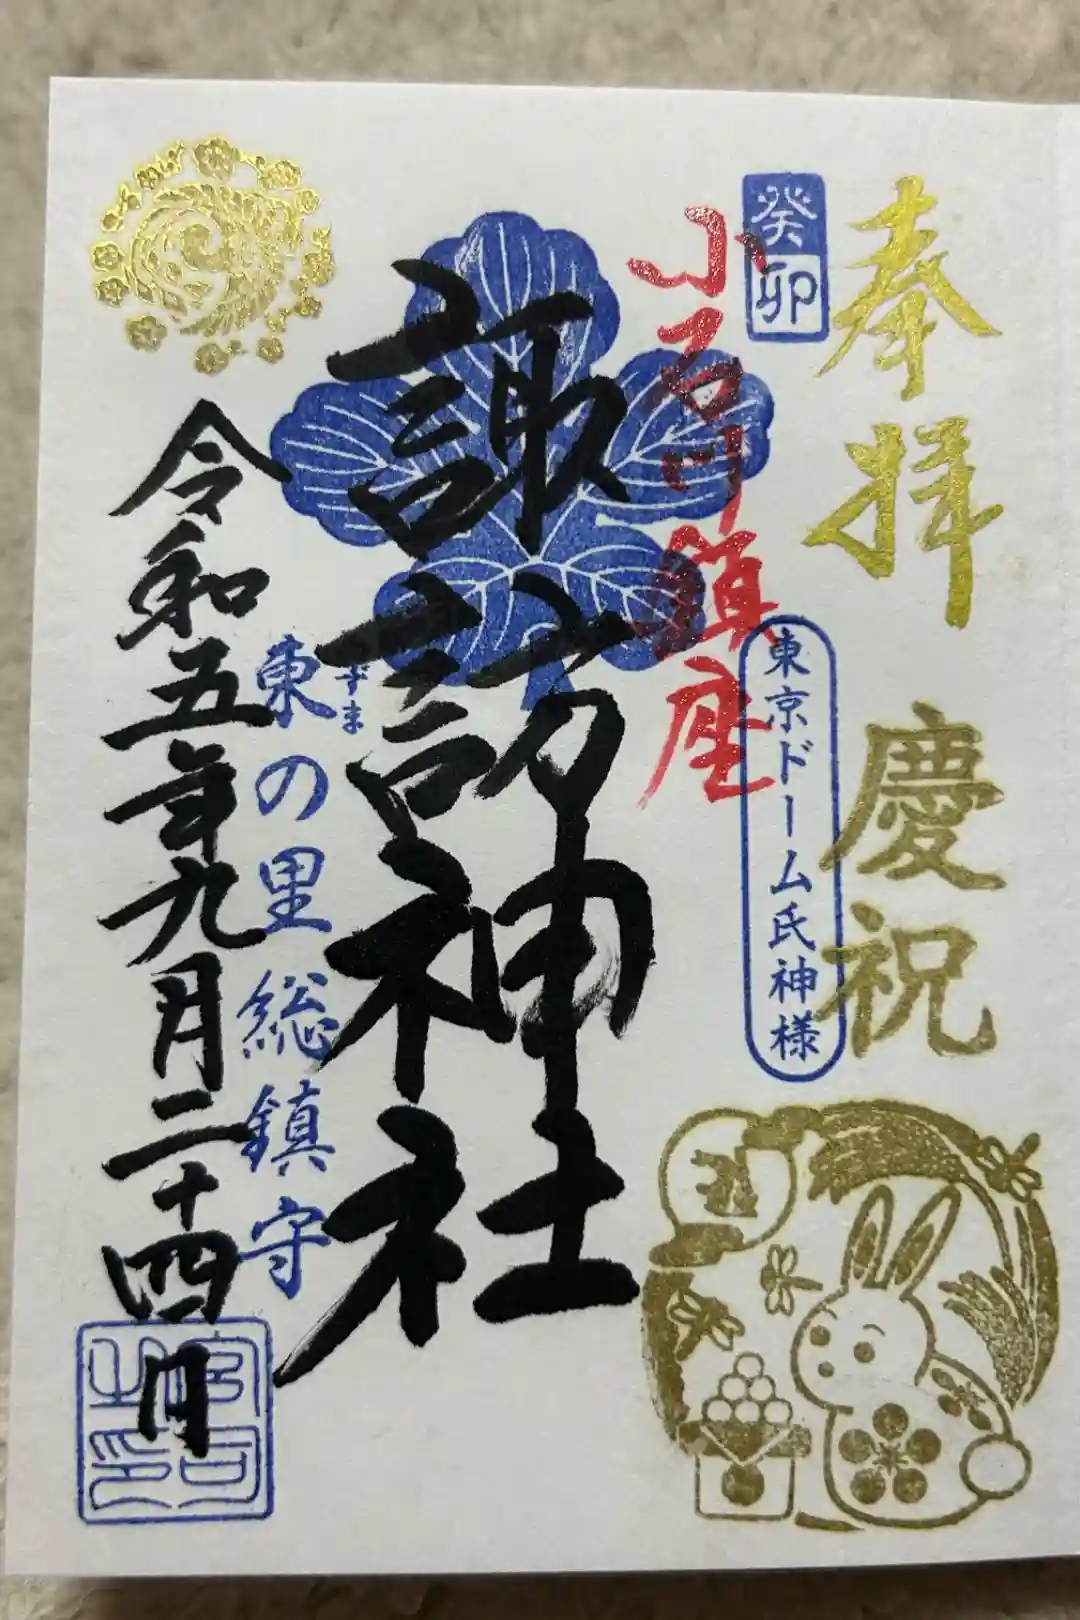 奉拝
慶祝
癸卯
東京ドーム氏神様
小石川鎮座
諏訪神社
ずま
東の里総鎮守
令和五年九月二十四月
宮司之印